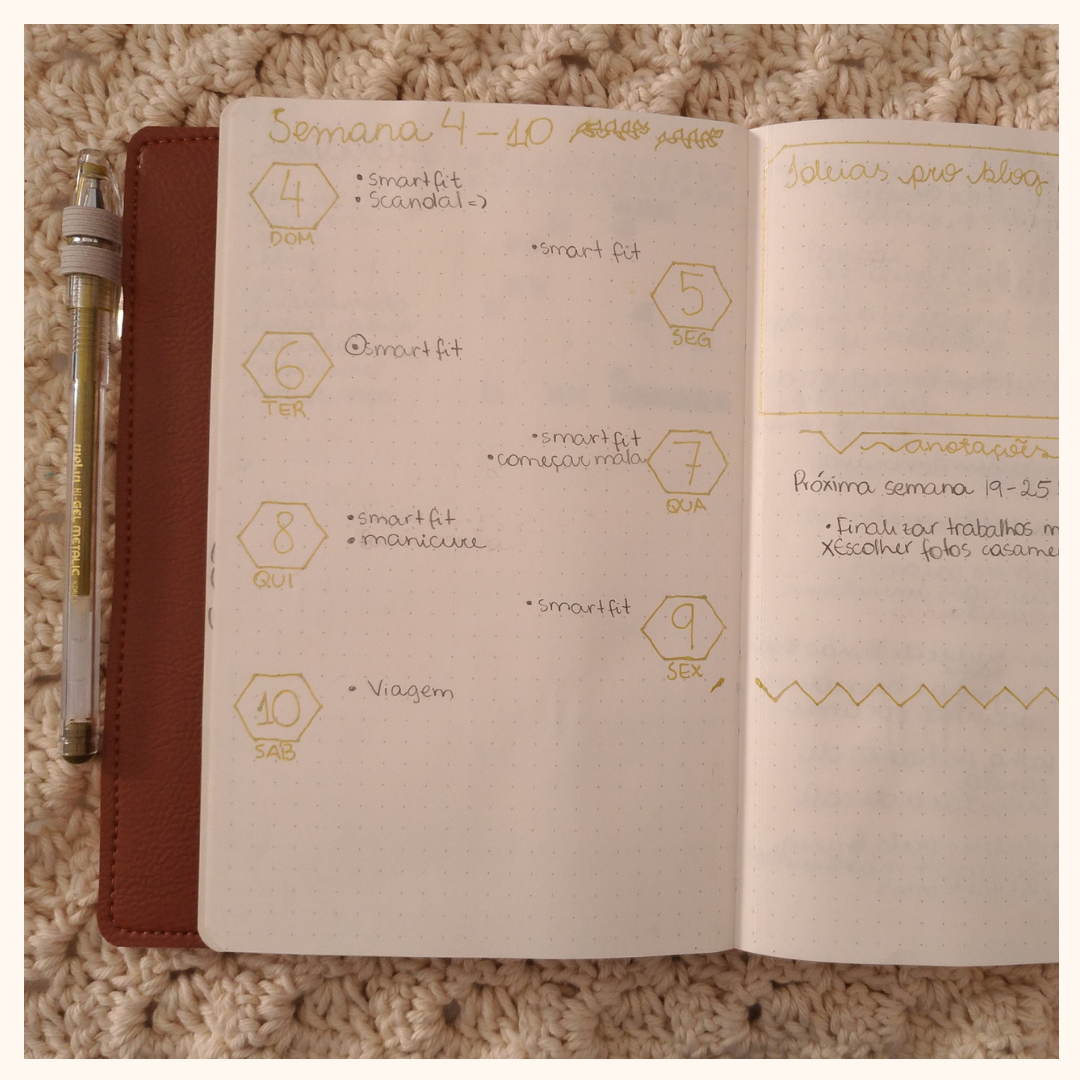 Semana 4-10
4
DOM
• smartfit
• Scandal =>
• smart fit
5
SEG
6
TER
smartfit
• smartfit
• começar mala
7
QUA
8
QUI
• smartfit
• manicure
• smartfit
9
SEX
10
SAB
• Viagem
Ideias pro blog
anotações
Próxima semana 19-25
• Finalizar trabalhos
X Escolher fotos casame
molin HI-GEL METALIC